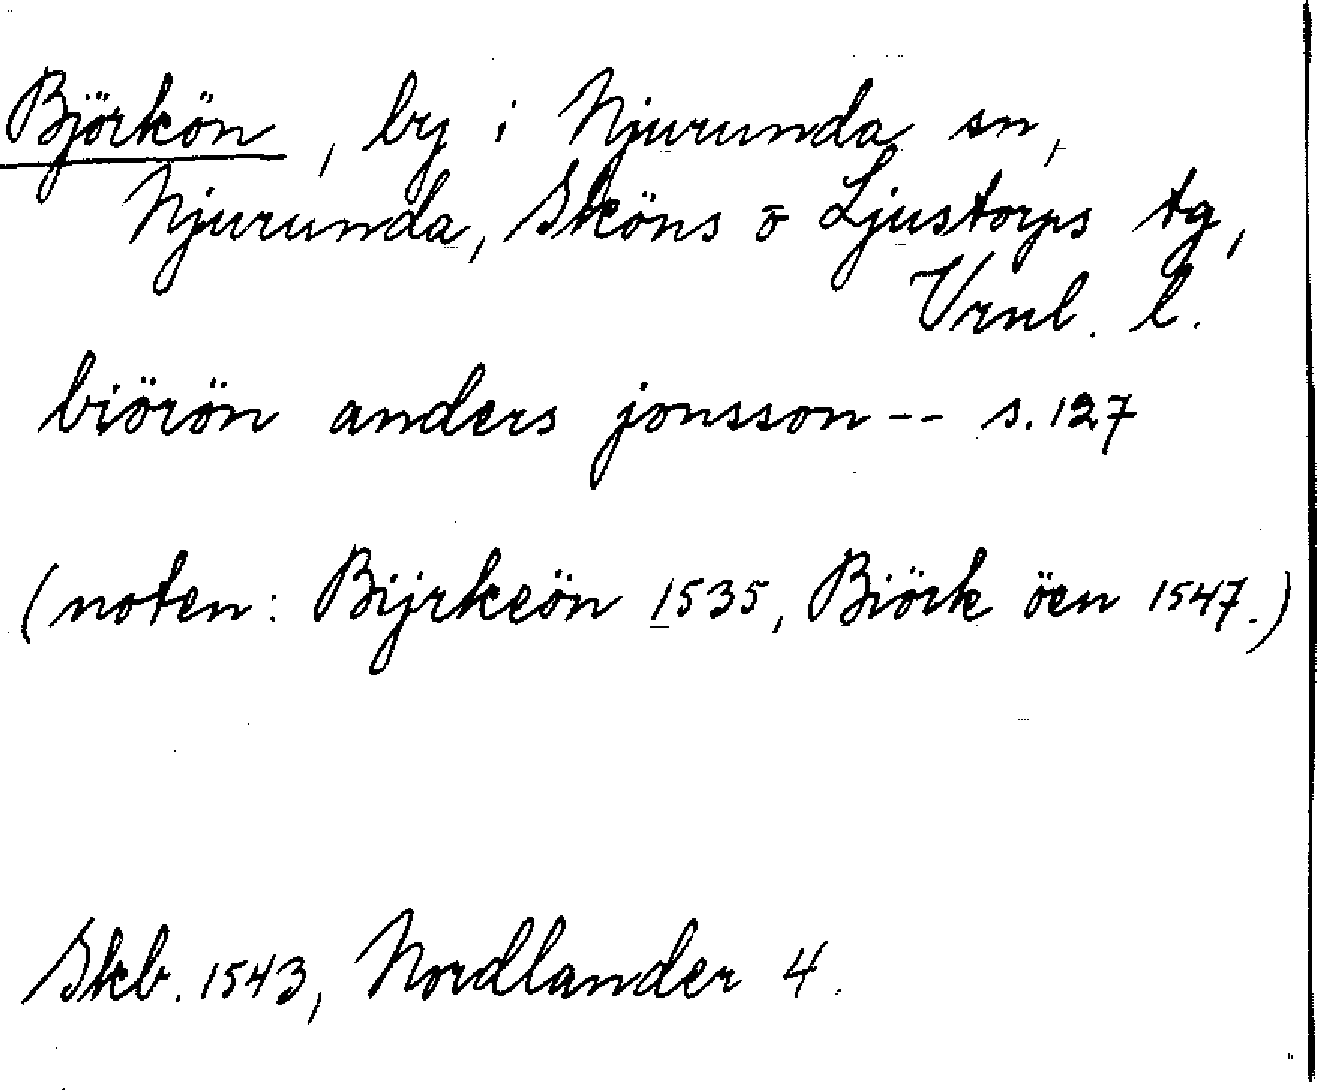 Björkön, by i Njurunda sn,
Njurunda, Sköns o Ljustorps tg,
Vrnl. l.
biörön anders jonsson -- s. 127
(noten: Bijrkeön 1535, Biörk öen 1547.)
Skb. 1543, Nordlander 4.